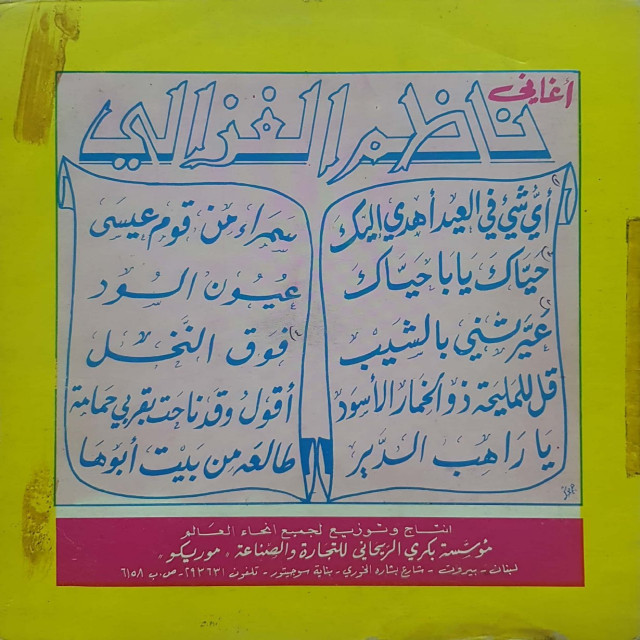 أغاني
ناظم الغزالي
أي شيء في العيد أهدي اليك
حياك يا بابا حياك
عيرتني بالشيب
قل للمليحة ذو الخمار الأسود
يا راهب الدير
سمراء من قوم عيسى
عيون السود
فوق النخل
أقول وقد ناحت بقربي حمامة
طالعه من بيت أبوها
انتاج وتوزيع لجميع انحاء العالم
مؤسسة بكري الريحاني للتجارة والصناعة «موريكو»
لبنان - بيروت - شارع بشاره الخوري - بناية سوجيتور - تلفون ٢٩٣٦٣١ - ص.ب ٦١٥٨